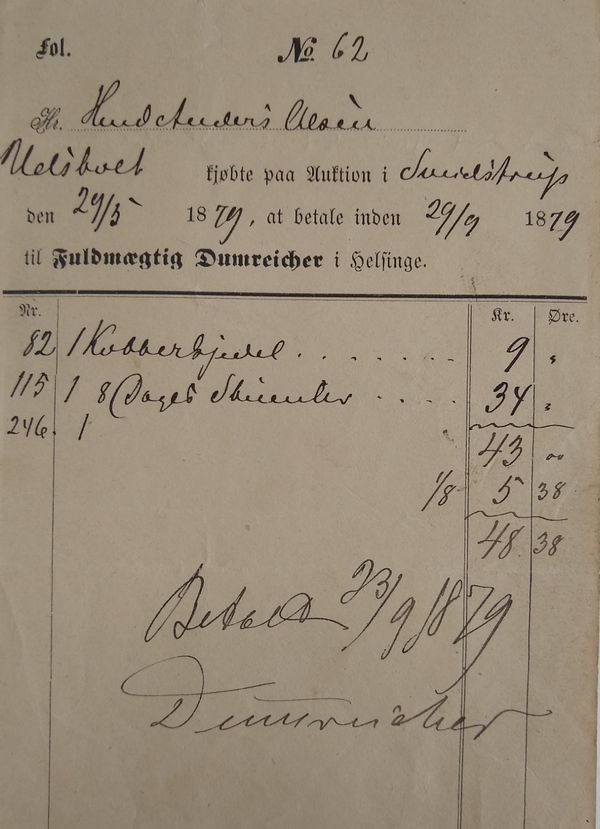 Fol. No 62
Hr. Hmd Anders Olsen
Udsholt kjøbte paa Auktion i Smidstrup
den 29/5 1879, at betale inden 29/9 1879
til Fuldmægtig Dumreicher i Helsinge.
Nr. Kr. Øre.
82 1 Kobberkjedel . . . . . . . 9 "
115 1 8 Dages Stueuhr . . . . 34 "
246. 1
43 00
1/8 5 38
48 38
Betalt 23/9 1879
Dumreicher